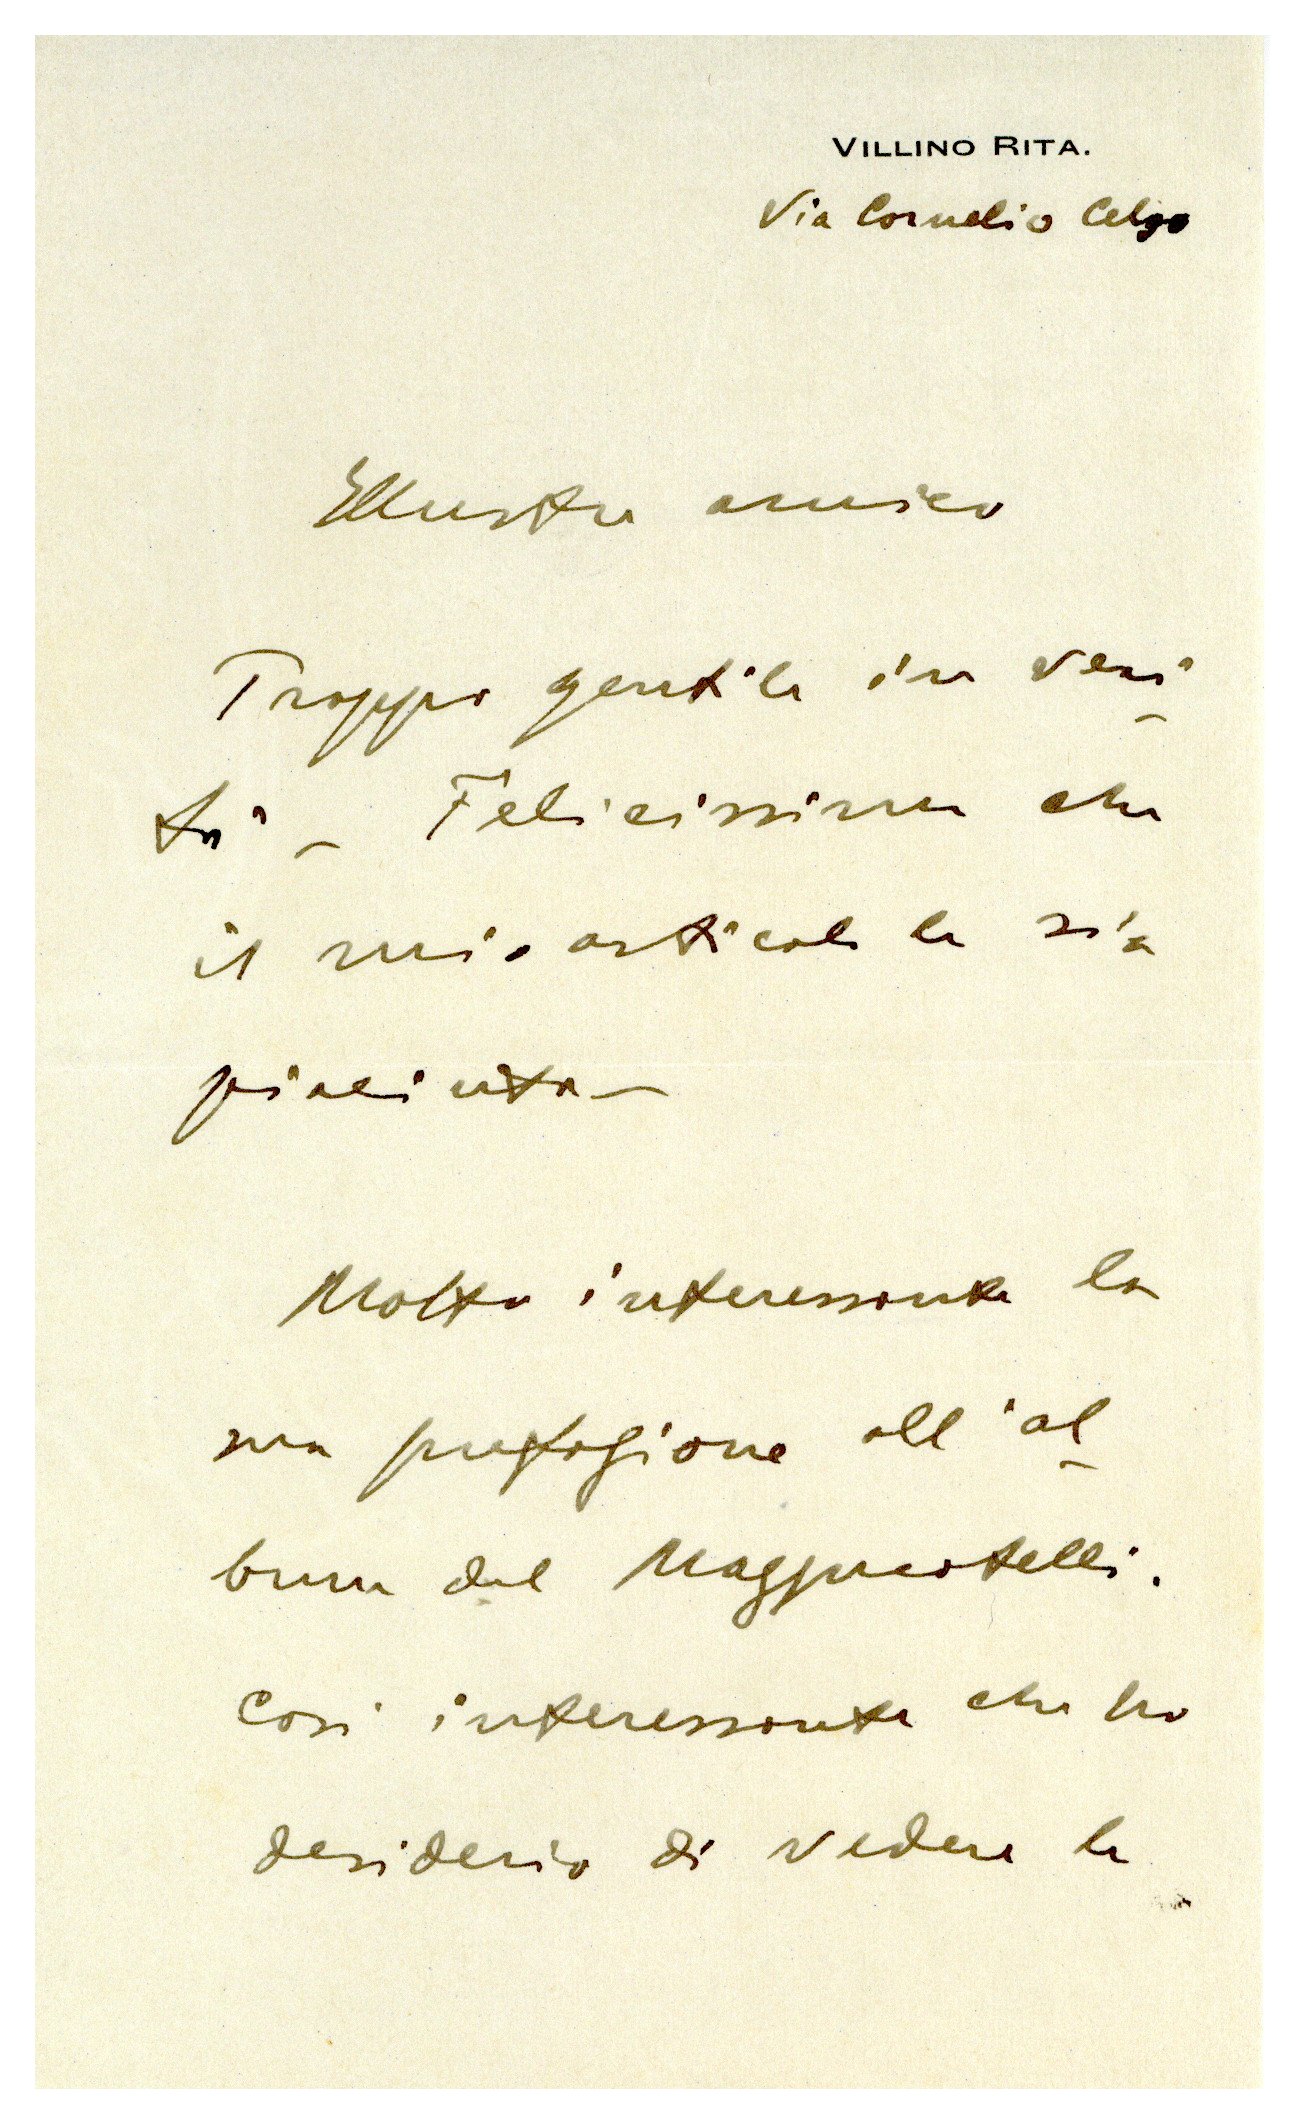 VILLINO RITA.
Via Cornelio Celso
Illustre amico
Troppo gentile in veri
tà – Felicissima che
il mio articolo le sia
piaciuto –
Molto interessante la
sua prefazione all'al
bum del Mazzucotelli.
Così interessante che ho
desiderio di vedere le